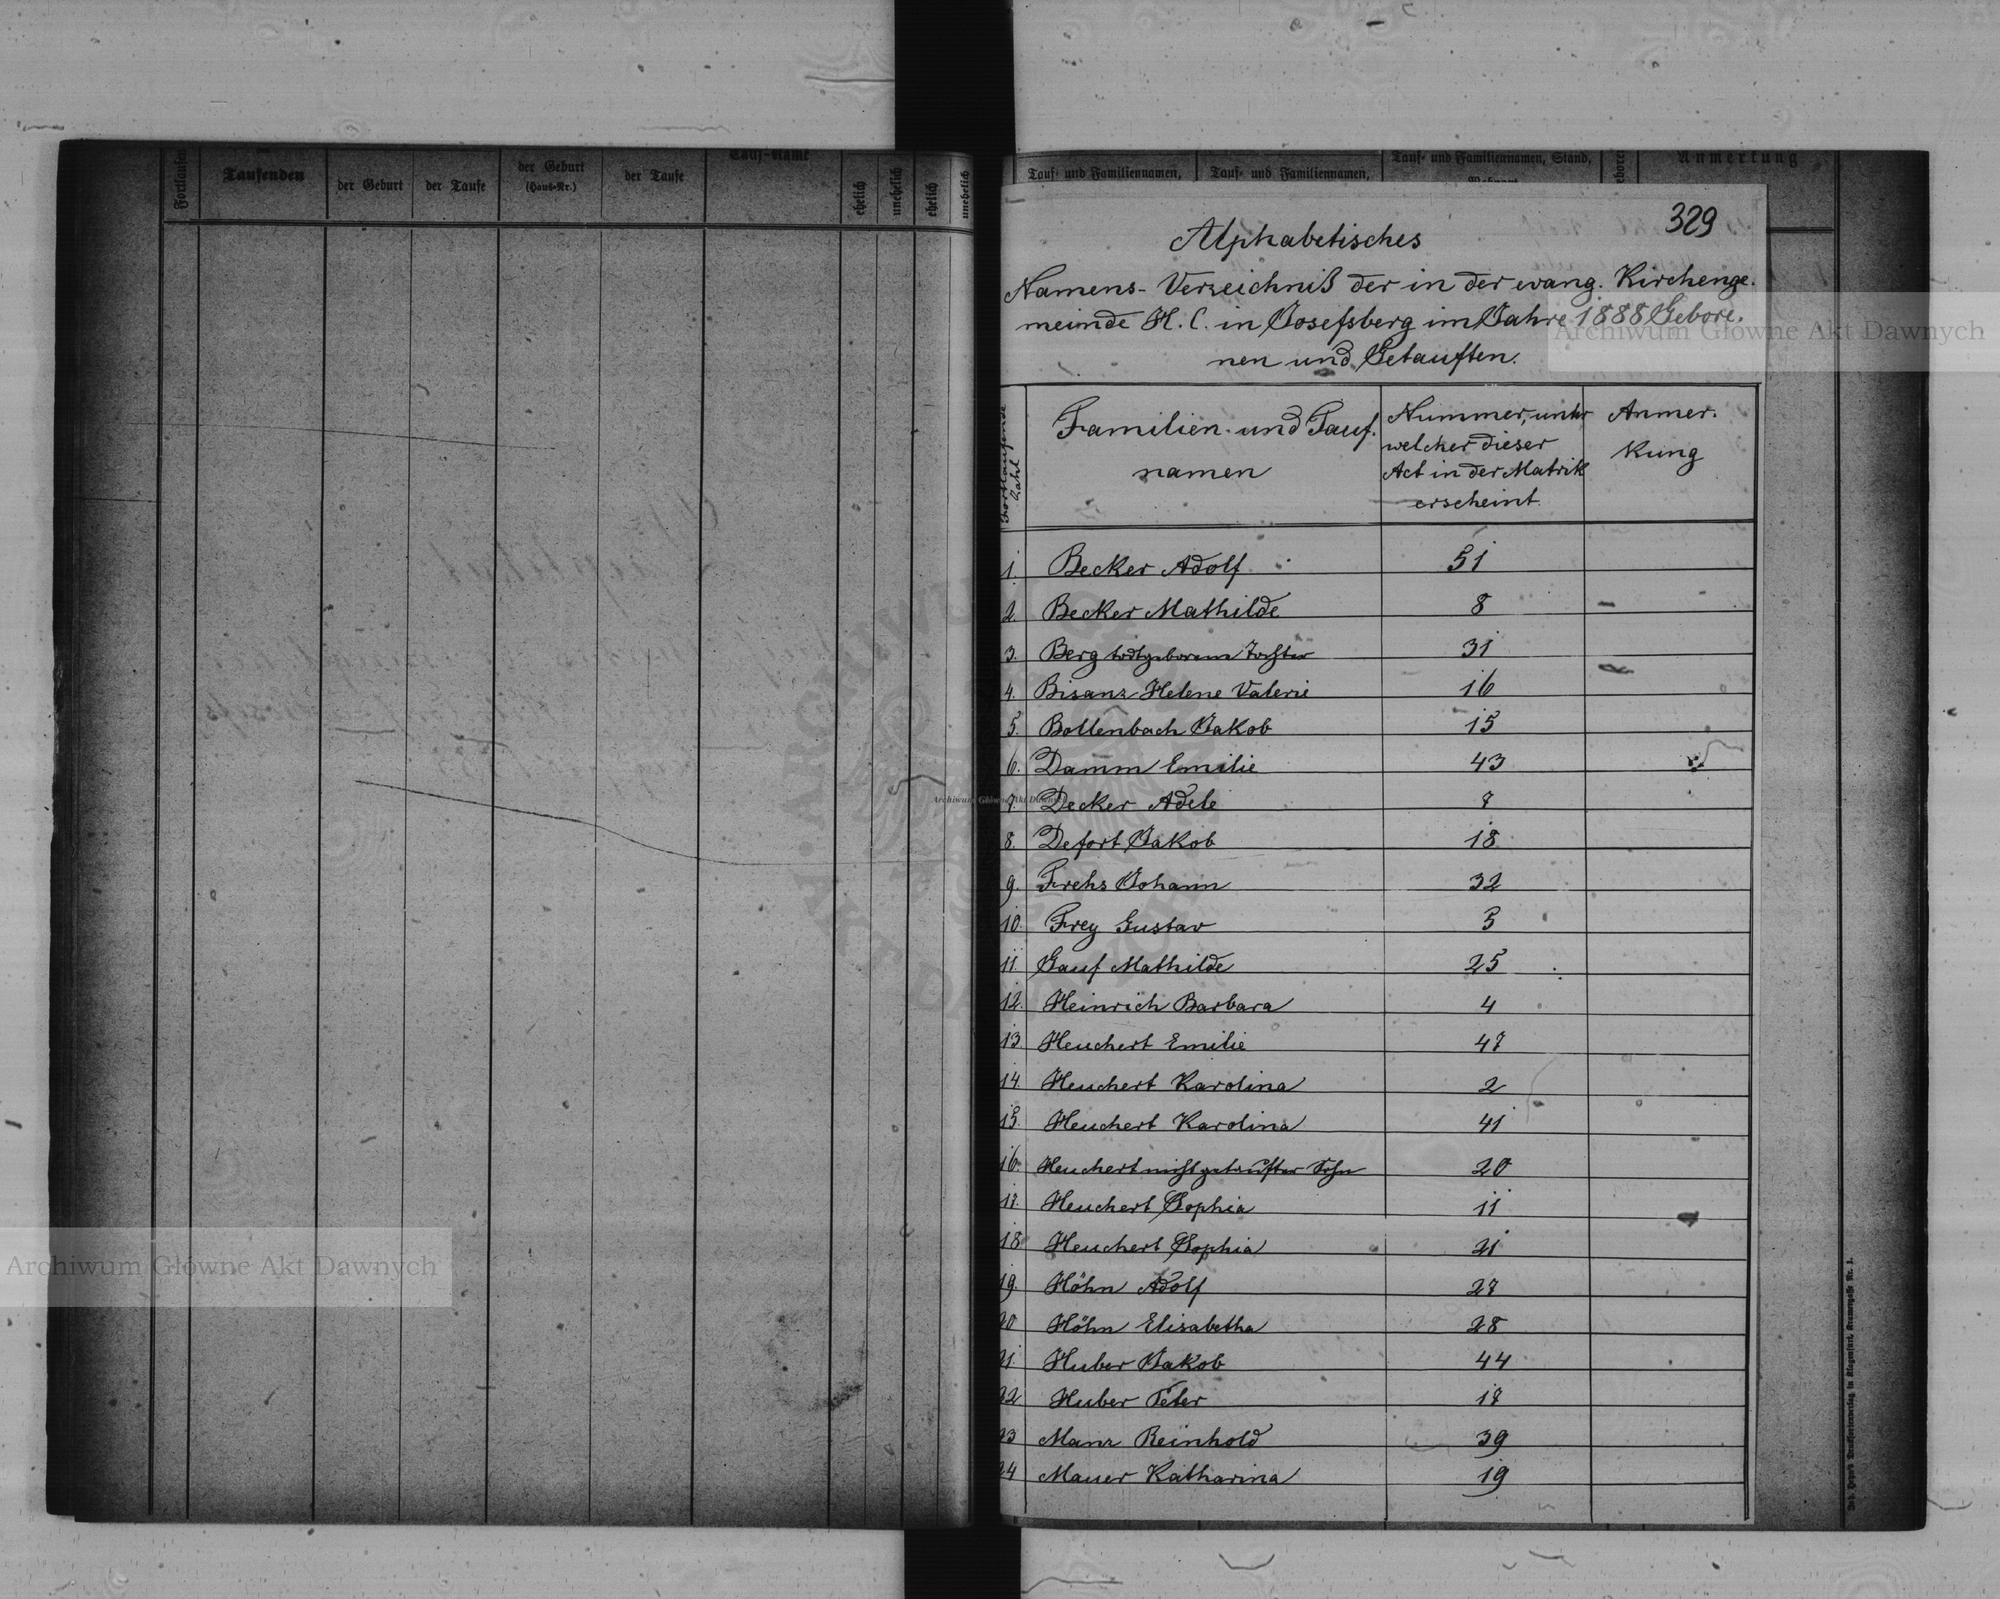 Taufenden
der Geburt
der Taufe
der Geburt
(Haus-Nr.)
der Taufe
Tauf-Name
ehelich
unehelich
ehelich
unehelich
Tauf- und Familiennamen,
Tauf- und Familiennamen,
Tauf- und Familiennamen, Stand,
Anmerkung
329
Alphabetisches
Namens-Verzeichniß der in der evang. Kirchenge-
meinde H. C. in Josefsberg im Jahre 1888 Gebore-
nen und Getauften.
Fortlaufende
Zahl
Familien- und Tauf-
namen
Nummer, unter
welcher dieser
Act in der Matrik
erscheint.
Anmer-
kung
1. Becker Adolf 51
2. Becker Mathilde 8
3. Berg todtgeborene Tochter 31
4. Bisanz Helene Valerie 16
5. Bollenbach Jakob 15
6. Damm Emilie 43
7. Decker Adele 7
8. Defort Jakob 18
9. Frehs Johann 32
10. Frey Gustav 5
11. Gauf Mathilde 25
12. Heinrich Barbara 4
13. Heuchert Emilie 47
14. Heuchert Karolina 2
15. Heuchert Karolina 41
16. Heuchert nichtgetaufter Sohn 20
17. Heuchert Sophia 11
18 Heuchert Sophia 21
19. Höhn Adolf 27
20 Höhn Elisabetha 28
21. Huber Jakob 44
22 Huber Peter 17
23 Manz Reinhold 39
24 Mauer Katharina 19
Archiwum Główne Akt Dawnych
Archiwum Główne Akt Dawnych
Archiwum Główne Akt Dawnych